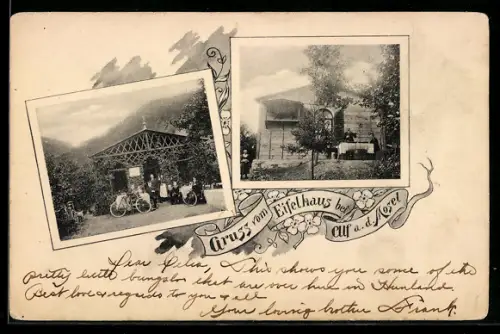 Gruss vom Eifelhaus bei
Alf a. d. Mosel
Dear Celia, This shows you some of the
pretty little bungalos that are over here in
Best love & regards to you & all
Your loving brother Frank.